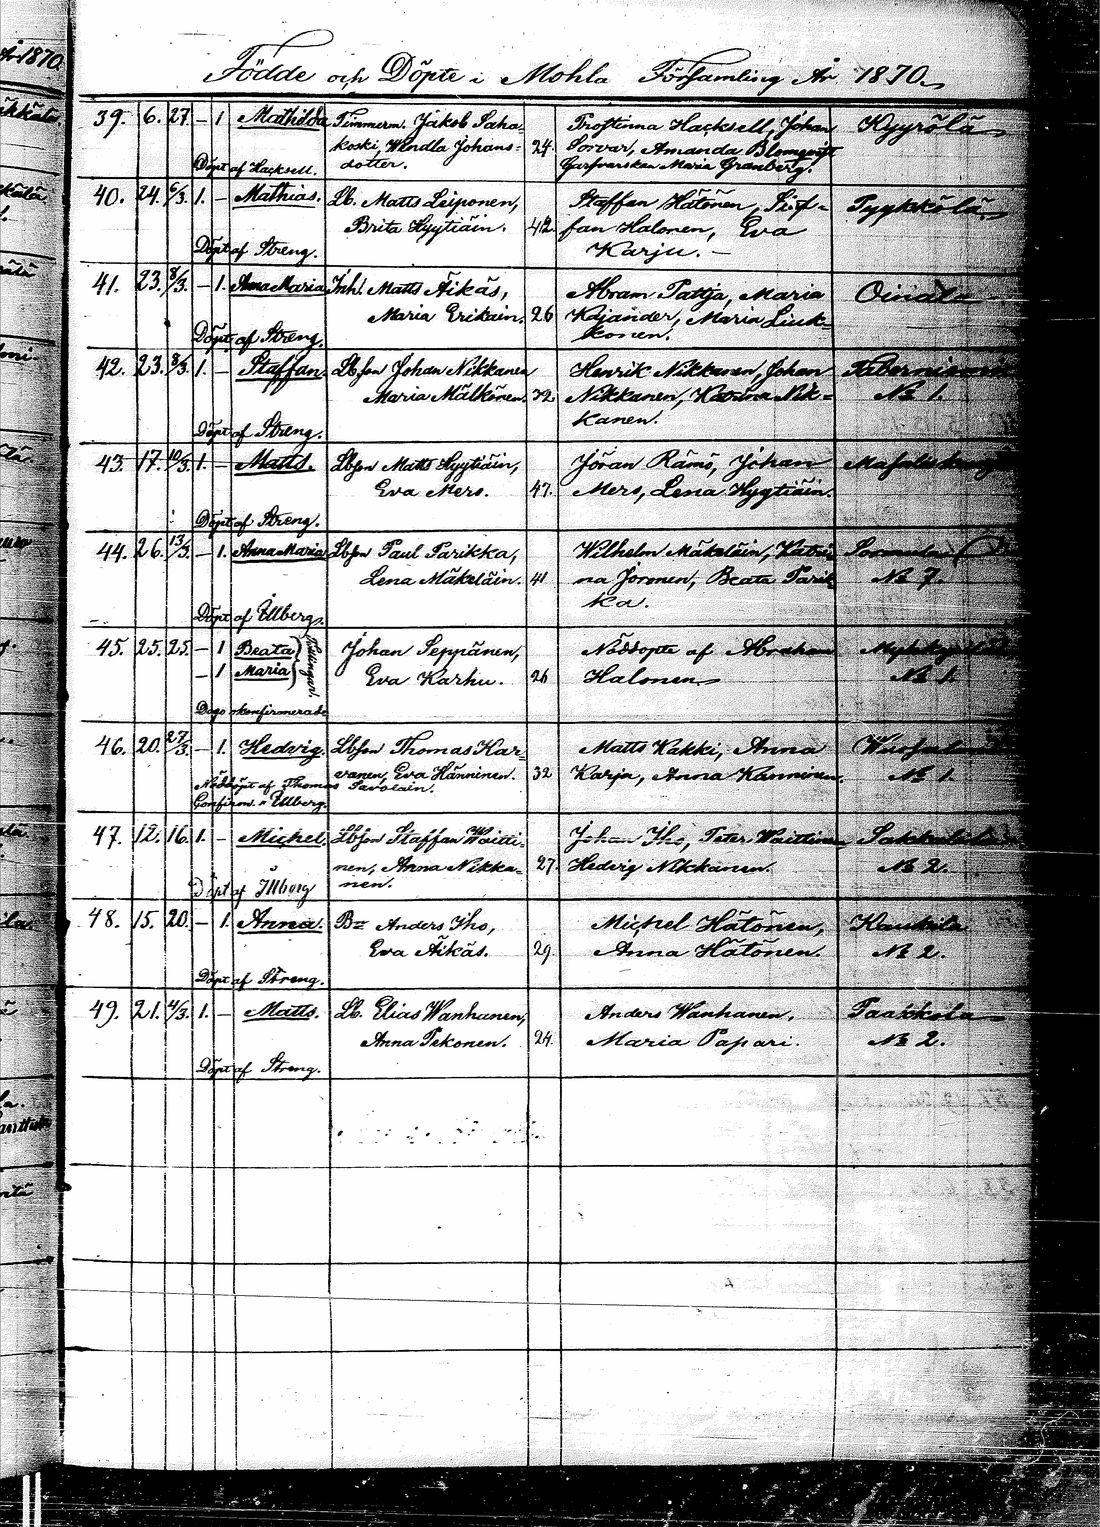 Födde och Döpte i Mohla Församling År 1870.
39. 6. 27. – 1 Mathilda Timmerm. Jakob Saha- Trostinna Hacksell, Johan Kyyrölä
koski, Wendla Johans- 24. Sorvar, Amanda Blomqvist
dotter. Garfvarskan Maria Granberg.
Döpt af Hacksell.
40. 24. 6/3. 1. – Mathias. Lb. Matts Leiponen, Staffan Hätönen, Stef- Pyykkölä
Brita Hyytiäin. 42. fan Halonen, Eva
Döpt af Streng. Karju. –
41. 23. 8/3. – 1. Anna Maria Inh. Matts Äikäs, Abram Pattja, Maria Oinala
Maria Erikäin. 26 Kajander, Maria Liuk-
Döpt af Streng. konen.
42. 23. 8/3. 1. – Staffan. Lbson Johan Nikkanen Henrik Nikkanen, Johan
Maria Mälkönen. 32 Nikkanen, Katrina Nik- № 1.
Döpt af Streng. kanen.
43. 17. 10/3. 1. – Matts. Lbson Matts Hyytiäin, Jöran Rämö, Johan
Eva Mers. 47. Mers, Lena Hyytiäin.
Döpt af Streng.
44. 26. 13/3. – 1. Anna Maria Lbson Paul Parikka, Wilhelm Mäkeläin, Katri-
Lena Mäkeläin. 41 na Joronen, Beata Parik- № 7.
Döpt af Ållberg. ka.
45. 25. 25. – 1 Beata Johan Seppänen, Nöddöpte af Abraham
– 1 Maria Tvillingar! Eva Karhu. 26 Halonen. № 1.
Dogo okonfirmerade
46. 20. 27/3. – 1. Hedvig Lbson Thomas Kar- Matts Kakki, Anna
vanen, Eva Hänninen. 32 Karja, Anna Kanninen. № 1.
Nöddöpt af Thomas Savolain.
Confirm. " Ållberg.
47. 12. 16. 1. – Michel. Lbson Staffan Waitti- Johan Iho, Peter Waittinen
nen, Anna Nikka- 27. Hedvig Nikkanen. № 2.
Döpt af Ållberg nen.
48. 15. 20. – 1. Anna. Bde Anders Iho, Michel Hätönen, Kaukila
Eva Äikäs. 29. Anna Hätönen. № 2.
Döpt af Streng.
49. 21. 4/3. 1. – Matts. Lb. Elias Wanhanen, Anders Wanhanen, Paakkola
Anna Pekonen. 24. Maria Papari. № 2.
Döpt af Streng.